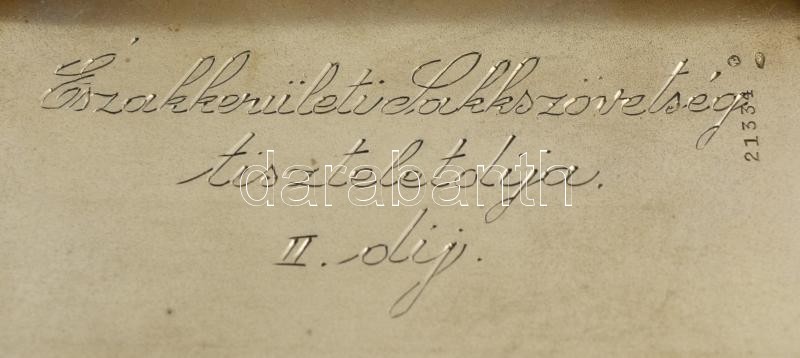 Északkerületi Sakkszövetség
tiszteletdíja.
II. díj.
21334
darabanth